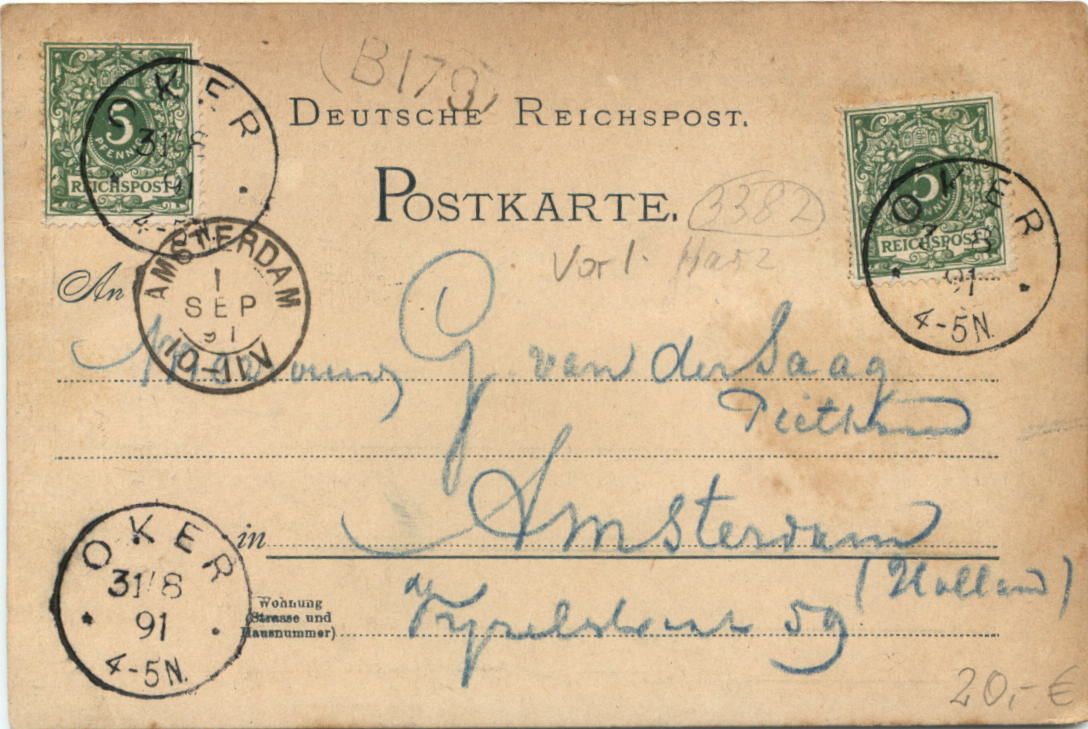 (B179)
DEUTSCHE REICHSPOST.
POSTKARTE.
3382
Vorl. Harz
5
PFENNIG
REICHSPOST
OKER
31/8
91
4-5N.
5
PFENNIG
REICHSPOST
OKER
31/8
91
4-5N.
AMSTERDAM
1
SEP
91
10-11V
An
G. van der Saag
Amsterdam
in
(Holland)
Wohnung
(Strasse und
Hausnummer)
59
OKER
31/8
91
4-5N.
20,-€